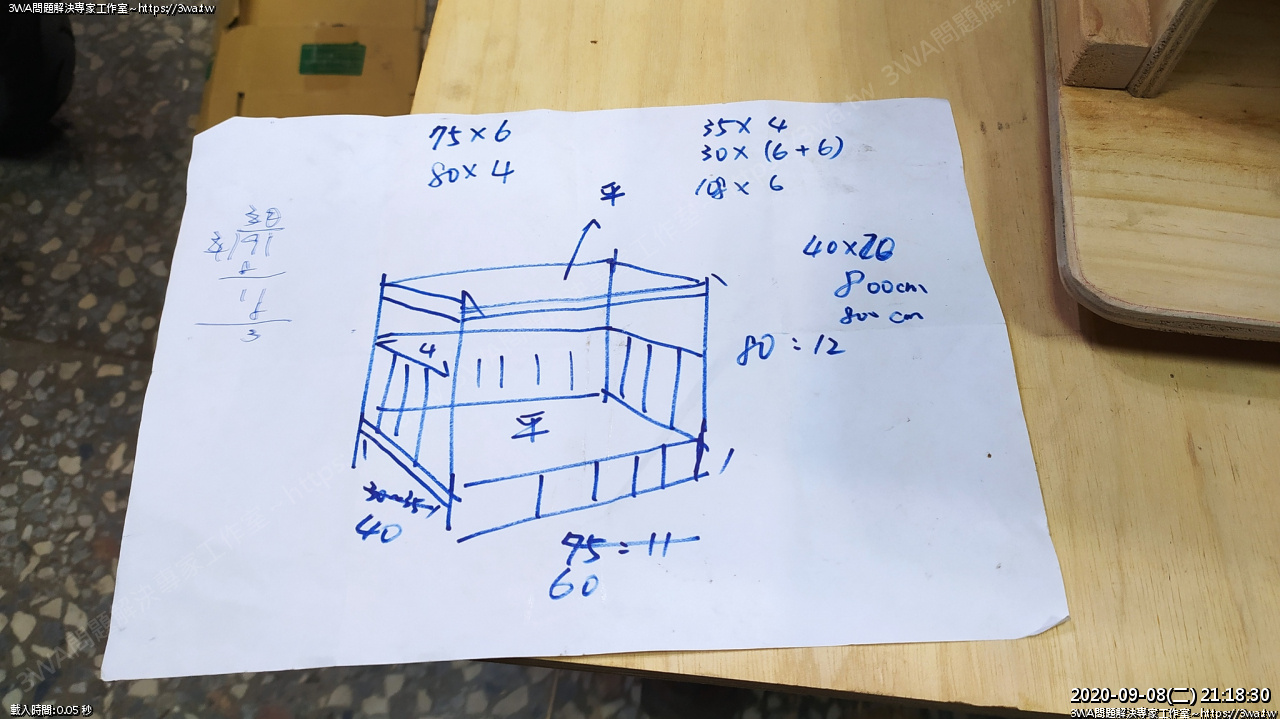 3WA問題解決專家工作室~https://3wa.tw
75×6
80×4
35×4
30×(6+6)
108×6
平
40×20
800cm
800 cm
80:12
4
平
30~35
40
75:11
60
2020-09-08(二) 21:18:30
載入時間:0.05 秒
3WA問題解決專家工作室~https://3wa.tw